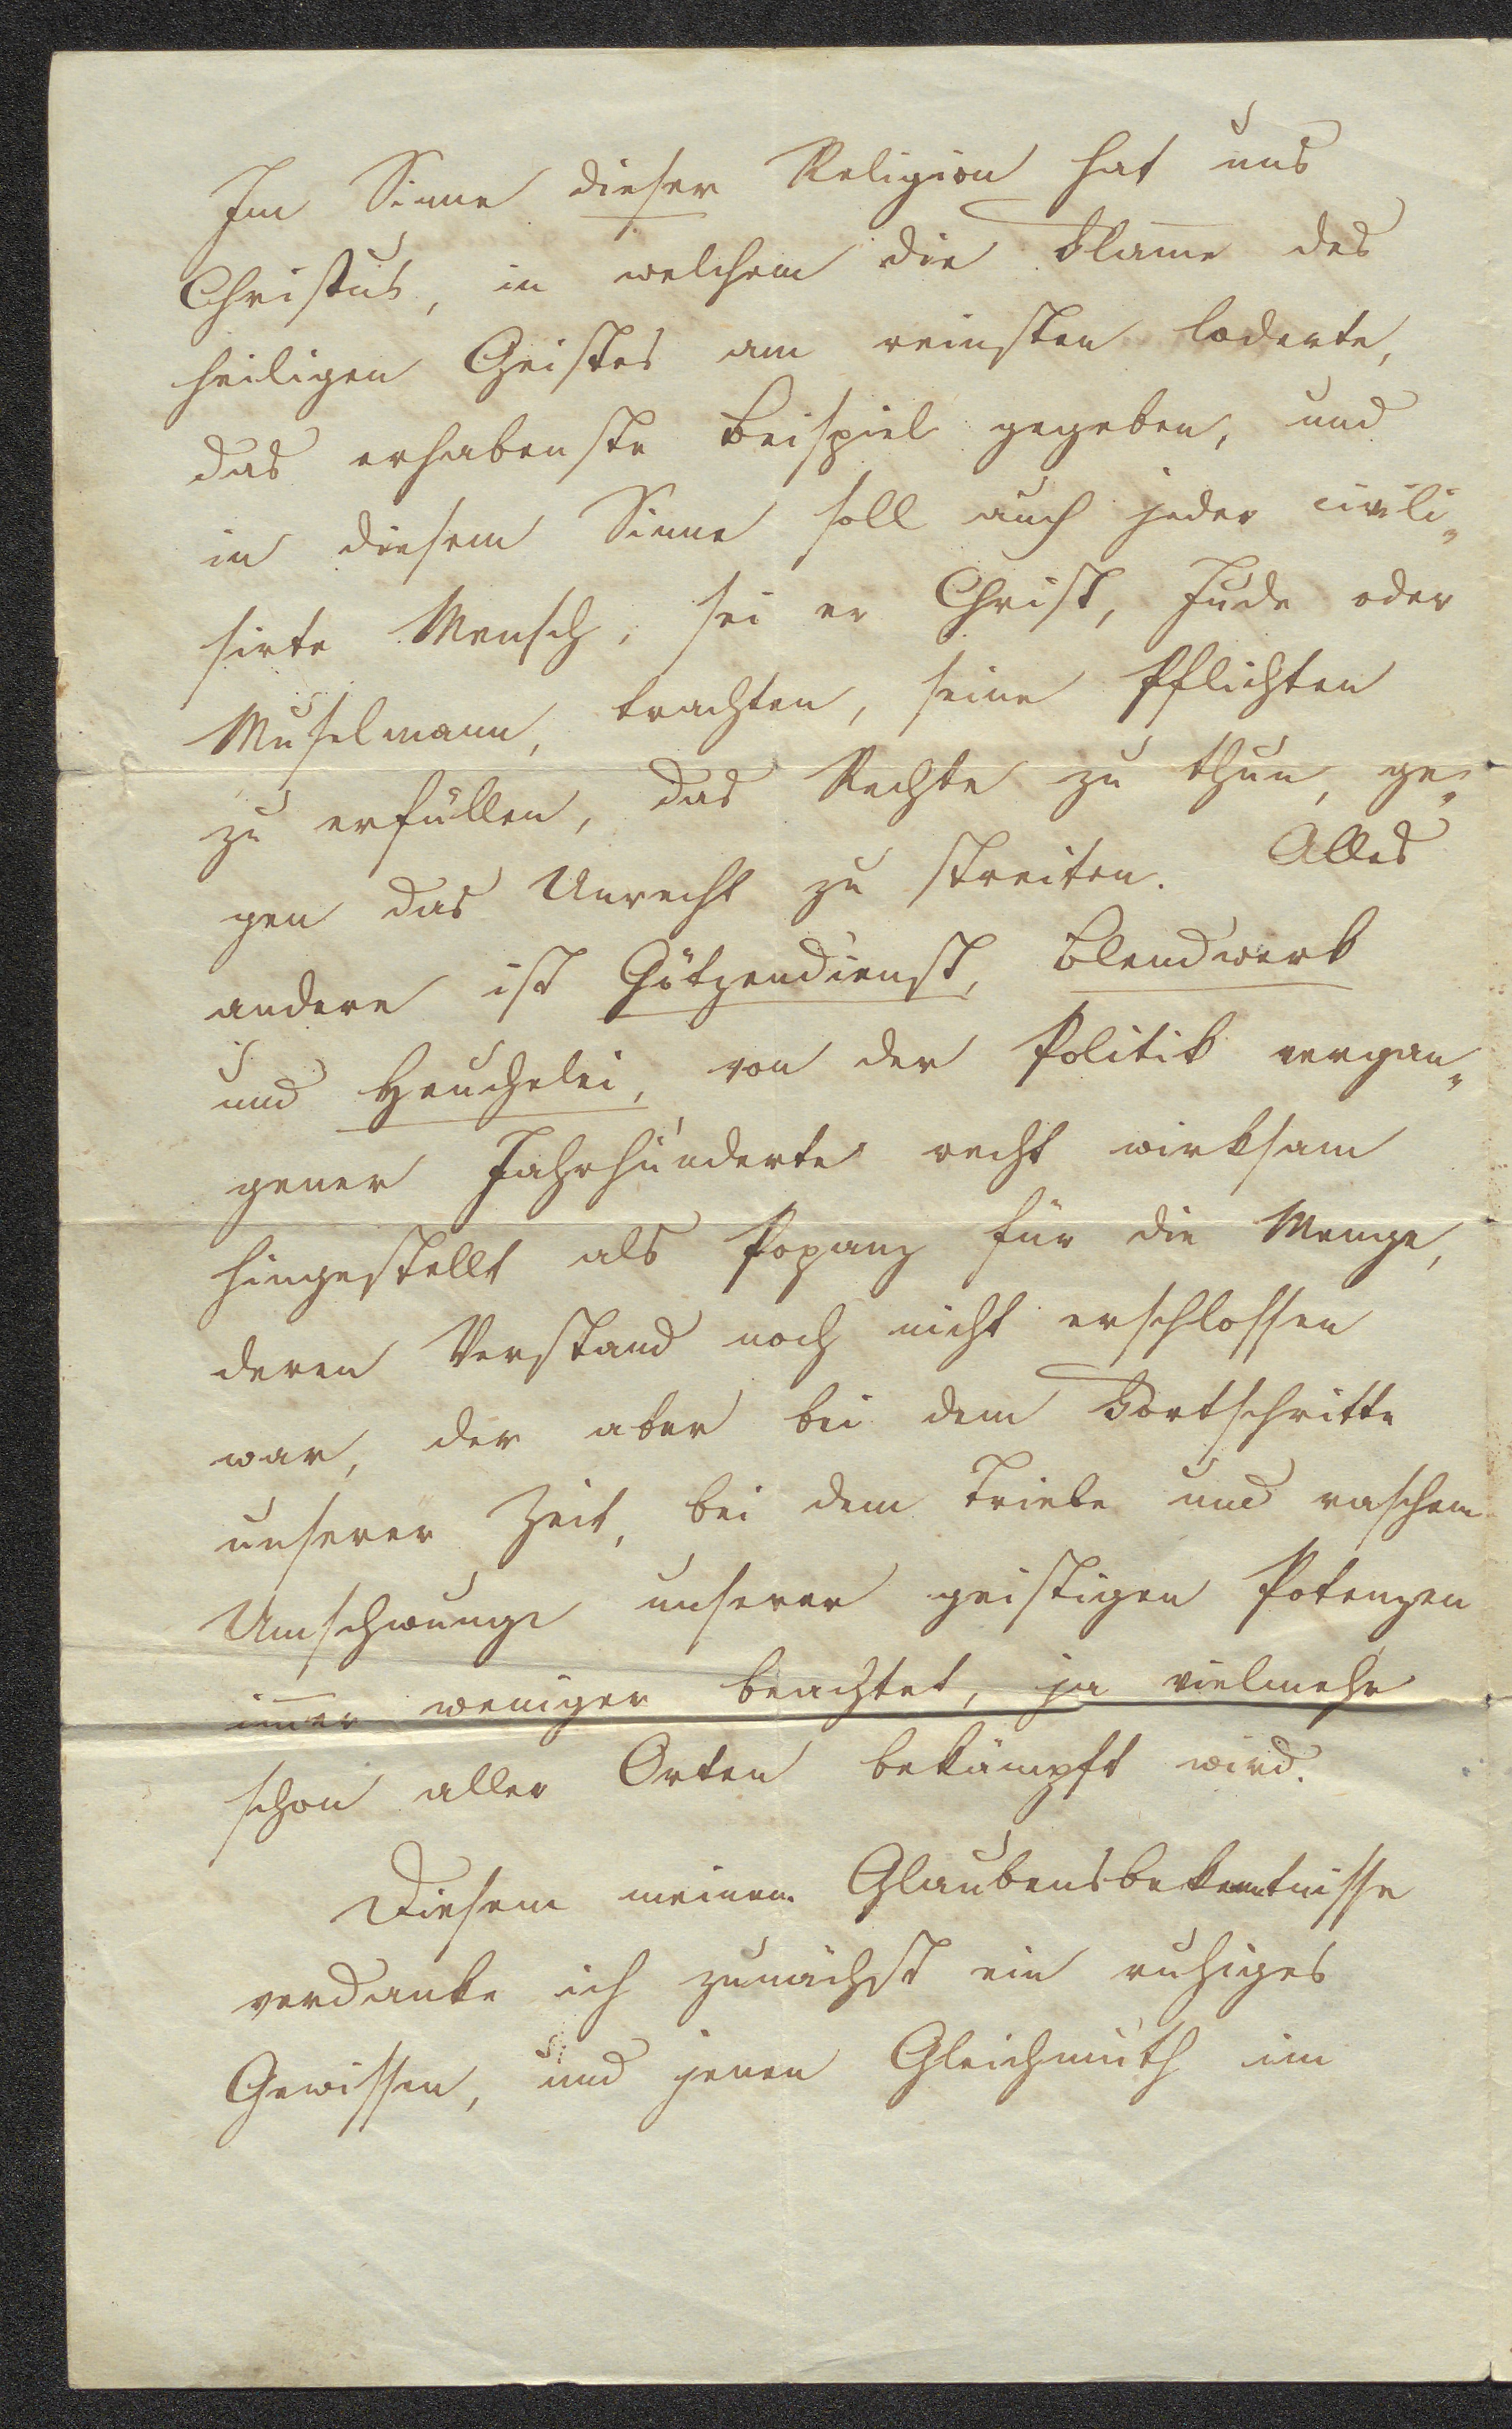 Im Sinne dieser Religion hat uns
Christus, in welchem die Flam̅e des
heiligen Geistes am reinsten loderte,
das erhabenste Beispiel gegeben, und
in diesem Sinne soll auch jeder civili„
sirte Mensch, sei er Christ, Jude oder
Muselmann, trachten, seine Pflichten
zu erfüllen, das Rechte zu thun, ge„
gen das Unrecht zu streiten. Alles
andere ist Götzendienst, Blendwerk
und Heuchelei, von der Politik vergan„
gener Jahrhunderte recht wirksam
hingestellt als Popanz für die Menge,
deren Verstand noch nicht erschlossen
war, der aber bei dem Fortschritte
unserer Zeit, bei dem Triebe und raschem
Umschwunge unserer geistigen Potenzen
im̅er weniger beachtet, ja vielmehr
schon aller Orten bekämpft wird.
Diesem meinem Glaubensbekenntnisse
verdanke ich zunächst ein ruhiges
Gewissen, und jenen Gleichmuth im